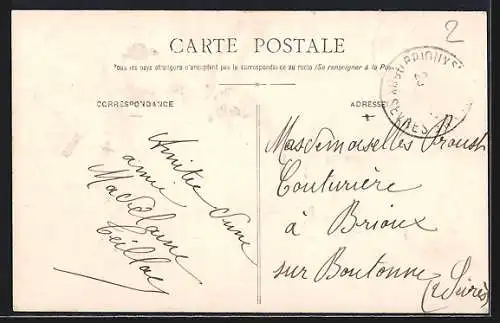 2
CARTE POSTALE
Tous les pays étrangers n'acceptent pas la correspondance au recto (Se renseigner à la Poste)
CORRESPONDANCE
ADRESSE
Amitié d'une
amie
Madelaine
Mesdemoiselles
Couturière
à Brioux
sur Boutonne
(2 Sèvres)